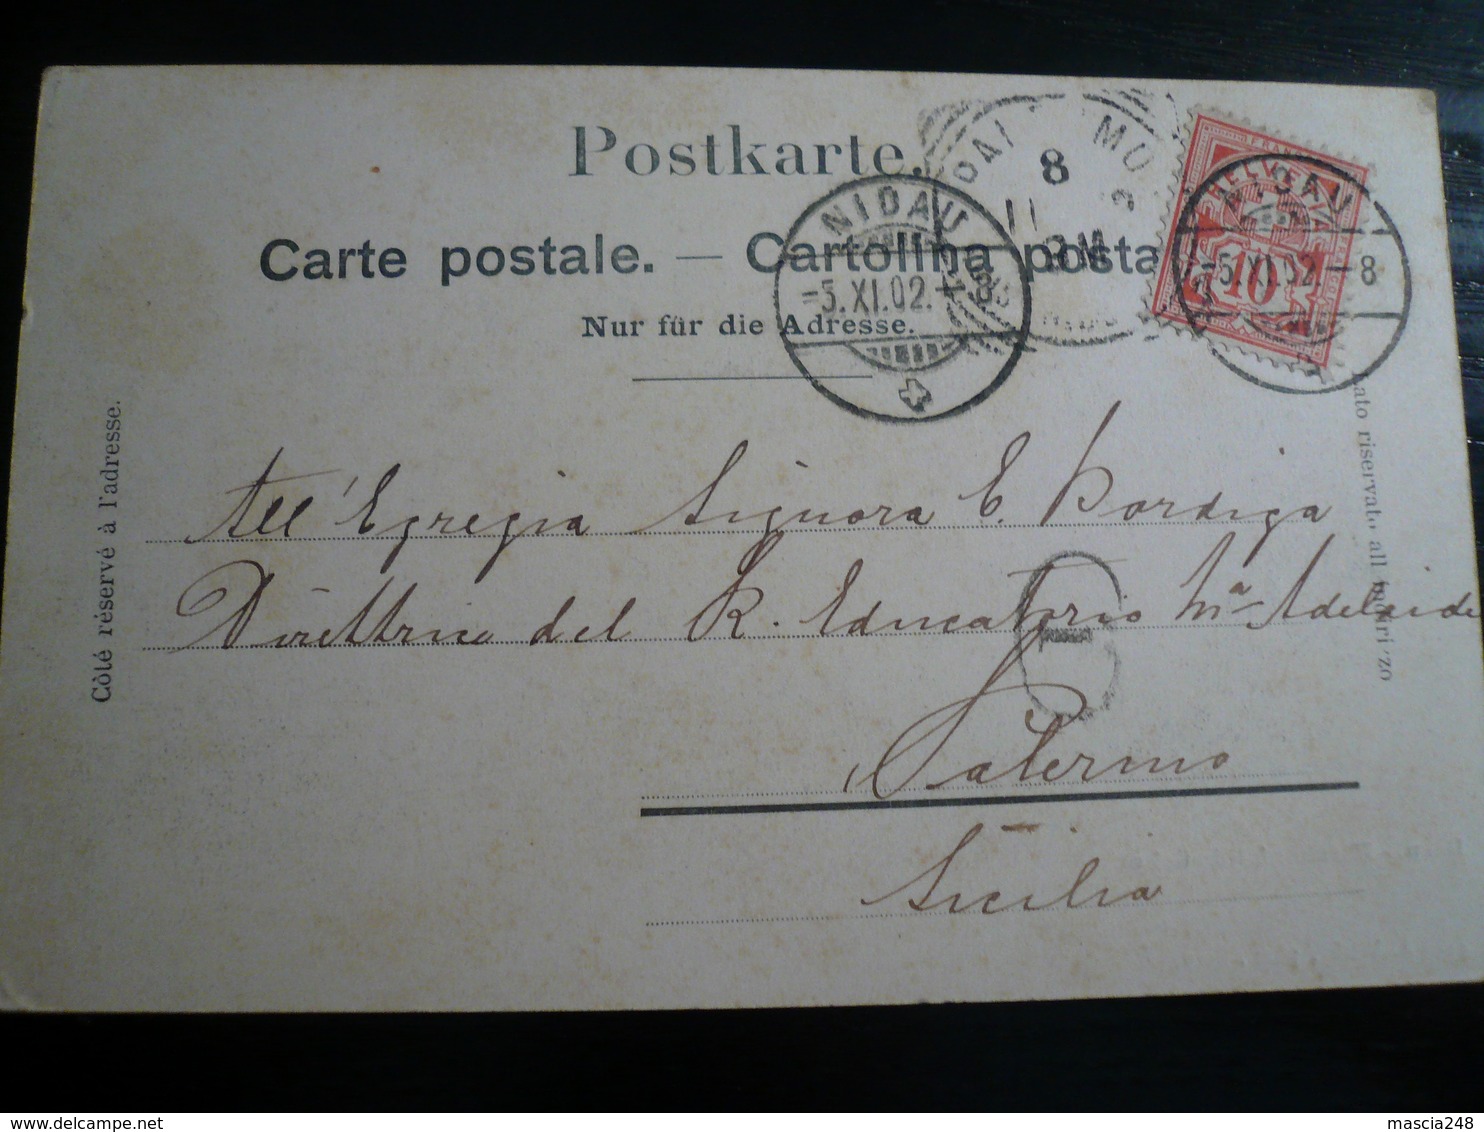 Postkarte.
Carte postale. — Cartolina posta
Nur für die Adresse.
NIDAU
-5.XI.02.-8
8
11
HELVETIA
10
NIDAU
-5.XI.02.-8
Côté réservé à l'adresse.
Lato riservato all'indirizzo
All'Egregia Signora E. Bordiga
Direttrice del R. Educatorio Mª Adelaide
Palermo
Sicilia
mascia248